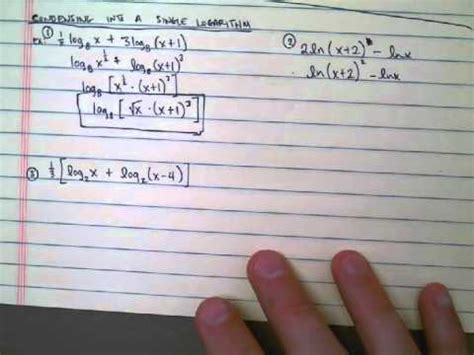 CONDENSING INTO A SINGLE LOGARITHM
ex ① ½ log₈ x + 3 log₈ (x+1)
log₈ x^½ + log₈ (x+1)³
log₈ [x^½ · (x+1)³]
log₈ [√x · (x+1)³]
② 2 ln (x+2) - ln x
ln (x+2)² - ln x
③ ⅓ [log₂ x + log₂ (x-4)]